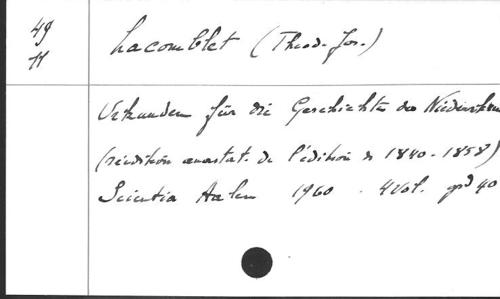 49 Lacomblet (Theod. Jos.)
11
Urkunden für die Geschichte des Niederrheins
(réédition anastat. de l'édition de 1840-1858)
Scientia Aalen 1960. 4 Vol. gd 4o